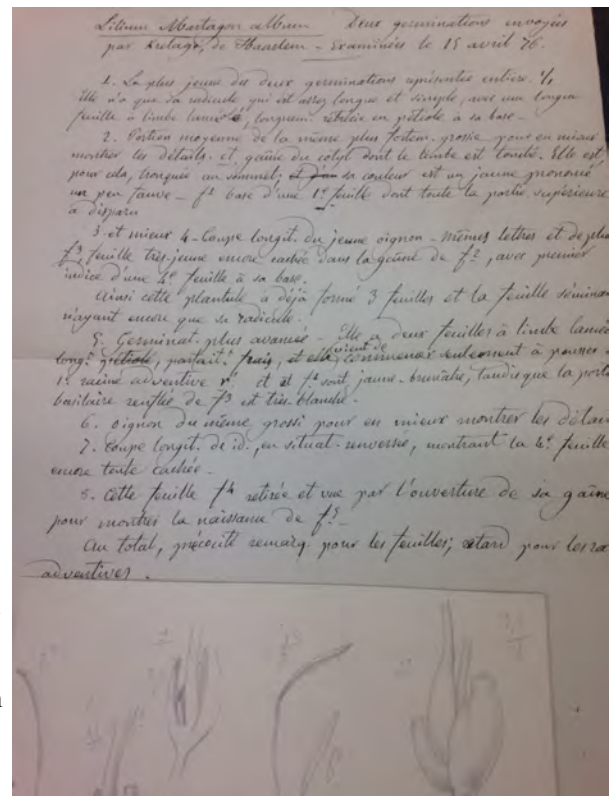 Lilium Martagon album. Deux germinations envoyées
par Kretage, de Haarlem - Examinées le 15 avril 76.
1. La plus jeune des deux germinations représentée entière. 1/1
Elle n'a que sa radicule, qui est assez longue et simple, avec une longue
feuille à limbe lancéolé, longuem. rétrécie en pétiole à sa base.
2. Portion moyenne de la même plus fortem. grossie pour en mieux
montrer les détails. ct, gaîne du cotyl. dont le limbe est tombé. Elle est,
pour cela, tronquée au sommet; sa couleur est un jaune prononcé
un peu fauve - f1 base d'une 1e feuille dont toute la partie supérieure
a disparu
3 et mieux 4 - Coupe longit. du jeune oignon - mêmes lettres et de plus
f3, feuille très-jeune encore cachée dans la gaîne de f2, avec premier
indice d'une 4e feuille à sa base.
Ainsi cette plantule a déjà formé 3 feuilles et la feuille séminale
n'ayant encore que sa radicule.
5. Germinat. plus avancée - Elle a deux feuilles à limbe lancéo
longt pétiolé, parfaitt frais, et elle vient de commencer seulement à pousser
1e racine adventive r, ct et f1 sont jaune-brunâtre, tandis que la port
basilaire renflée de f3 est très-blanche.
6. Oignon du même grossi pour en mieux montrer les détails
7. Coupe longit. de id., en situat. renversée, montrant la 4e feuille
encore toute cachée.
8. Cette feuille f4 retirée et vue par l'ouverture de sa gaîne
pour montrer la naissance de f5.
Au total, précocité remarq. pour les feuilles; retard pour les ra
adventives.